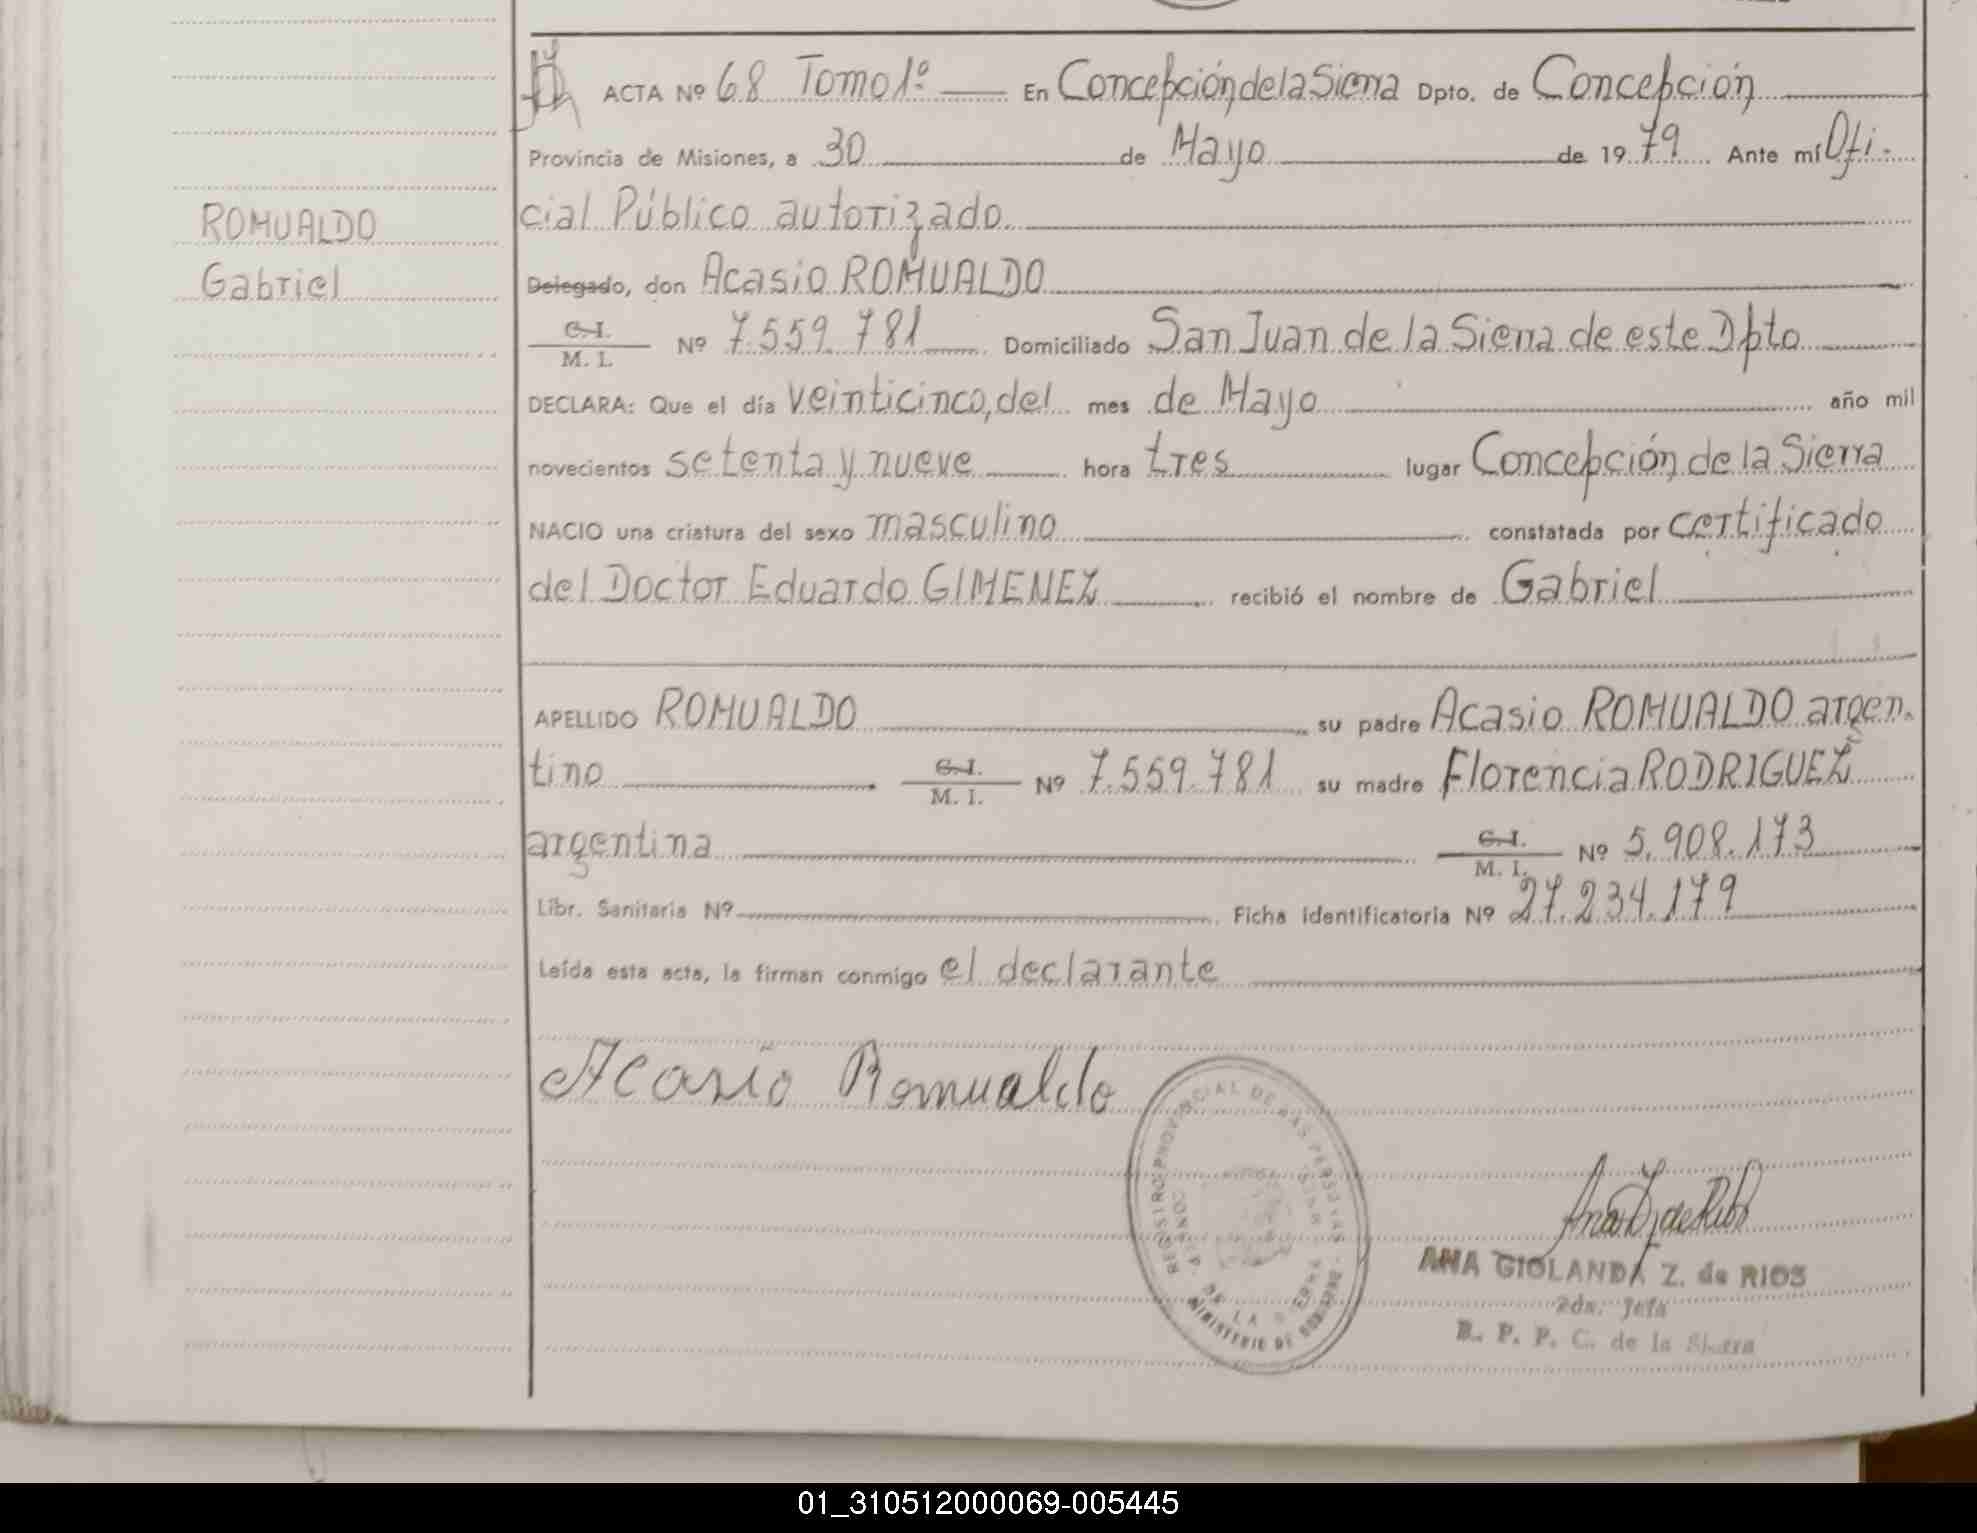 ACTA Nº 68 Tomo 1º En Concepción de la Sierra Dpto. de Concepción
Provincia de Misiones, a 30 de Mayo de 1979 Ante mí Ofi-
cial Público autorizado
ROMUALDO
Gabriel
Delegado, don Acasio ROMUALDO
C.I.
M. I. Nº 7.559.781 Domiciliado San Juan de la Sierra de este Dpto
DECLARA: Que el día veinticinco, del mes de Mayo año mil
novecientos setenta y nueve hora tres lugar Concepción de la Sierra
NACIO una criatura del sexo masculino constatada por certificado
del Doctor Eduardo GIMENEZ recibió el nombre de Gabriel
APELLIDO ROMUALDO su padre Acasio ROMUALDO argen-
tino C.I. M. I. Nº 7.559.781 su madre Florencia RODRIGUEZ
argentina C.I. M. I. Nº 5.908.173
Libr. Sanitaria Nº Ficha Identificatoria Nº 27.234.179
Leída esta acta, la firman conmigo el declarante
Acasio Romualdo
REGISTRO PROVINCIAL DE LAS PERSONAS
CONCEP. DE LA SIERRA
MINISTERIO DE GOBIERNO
Ana Z de Rios
ANA GIOLANDA Z. de RIOS
2da. Jefa
R. P. P. C. de la Sierra
01_310512000069-005445